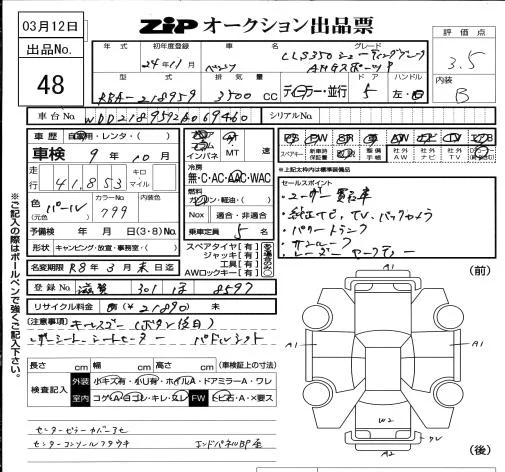 03月12日
出品No.
48
ZiP オークション出品票
評価点
3.5
内装
B
年式 初年度登録 車名 グレード
24年11月 ベンツ CLS350シューティングブレーク
AMGスポーツP
型式 排気量 ドア ハンドル
RBA-218959 3500 CC ディーラー・並行 5 左・右
車台No. WDD2189592A069460 シリアルNo.
車歴 自家用・レンタ・( )
車検 9年10月
走行 41,853 キロ マイル
色 (元色) パール カラーNo. 799 内装色
予備検 年 月 日(3・8)No.
形状 キャンピング・放置・事務室・( )
名変期限 R8年3月末日迄
登録No. 滋賀 301 ほ 8597
リサイクル料金 有(¥21890) 未
インパネ MT 速
冷房
無・C・AC・AAC・WAC
燃料
ガソリン・軽油・( )
Nox 適合・非適合
乗車定員 5 名
スペアタイヤ【有】
ジャッキ【有】
工具【有】
AWロックキー【有】
PS PW SR AW TV
スペアキー 新車時保証書 整備手帳 社外AW 社外ナビ 社外TV
※上記太枠内は標準装備品
セールスポイント
・ユーザー買取車
・純正ナビ、TV、バックカメラ
・パワートランク
・サンルーフ
・レーダーセーフティー
(注意事項) キーレスゴー(ボタン後日)
レザーシート シートヒーター パドルシフト
長さ cm 幅 cm 高さ cm (車検証上の寸法)
検査記入 外装 小キズ有・小U有・ホイルA・ドアミラーA・ワレ
室内 コゲA・ヨゴレ・キレ・スレ FW トビ石・A・X要ス
センターピラーカバーコセ
センターコンソールフタウキ エンドパネル凹 歪
※ご記入の際はボールペンで強くご記入下さい。
(前)
A1
A1
A1
W2
A2
(後)